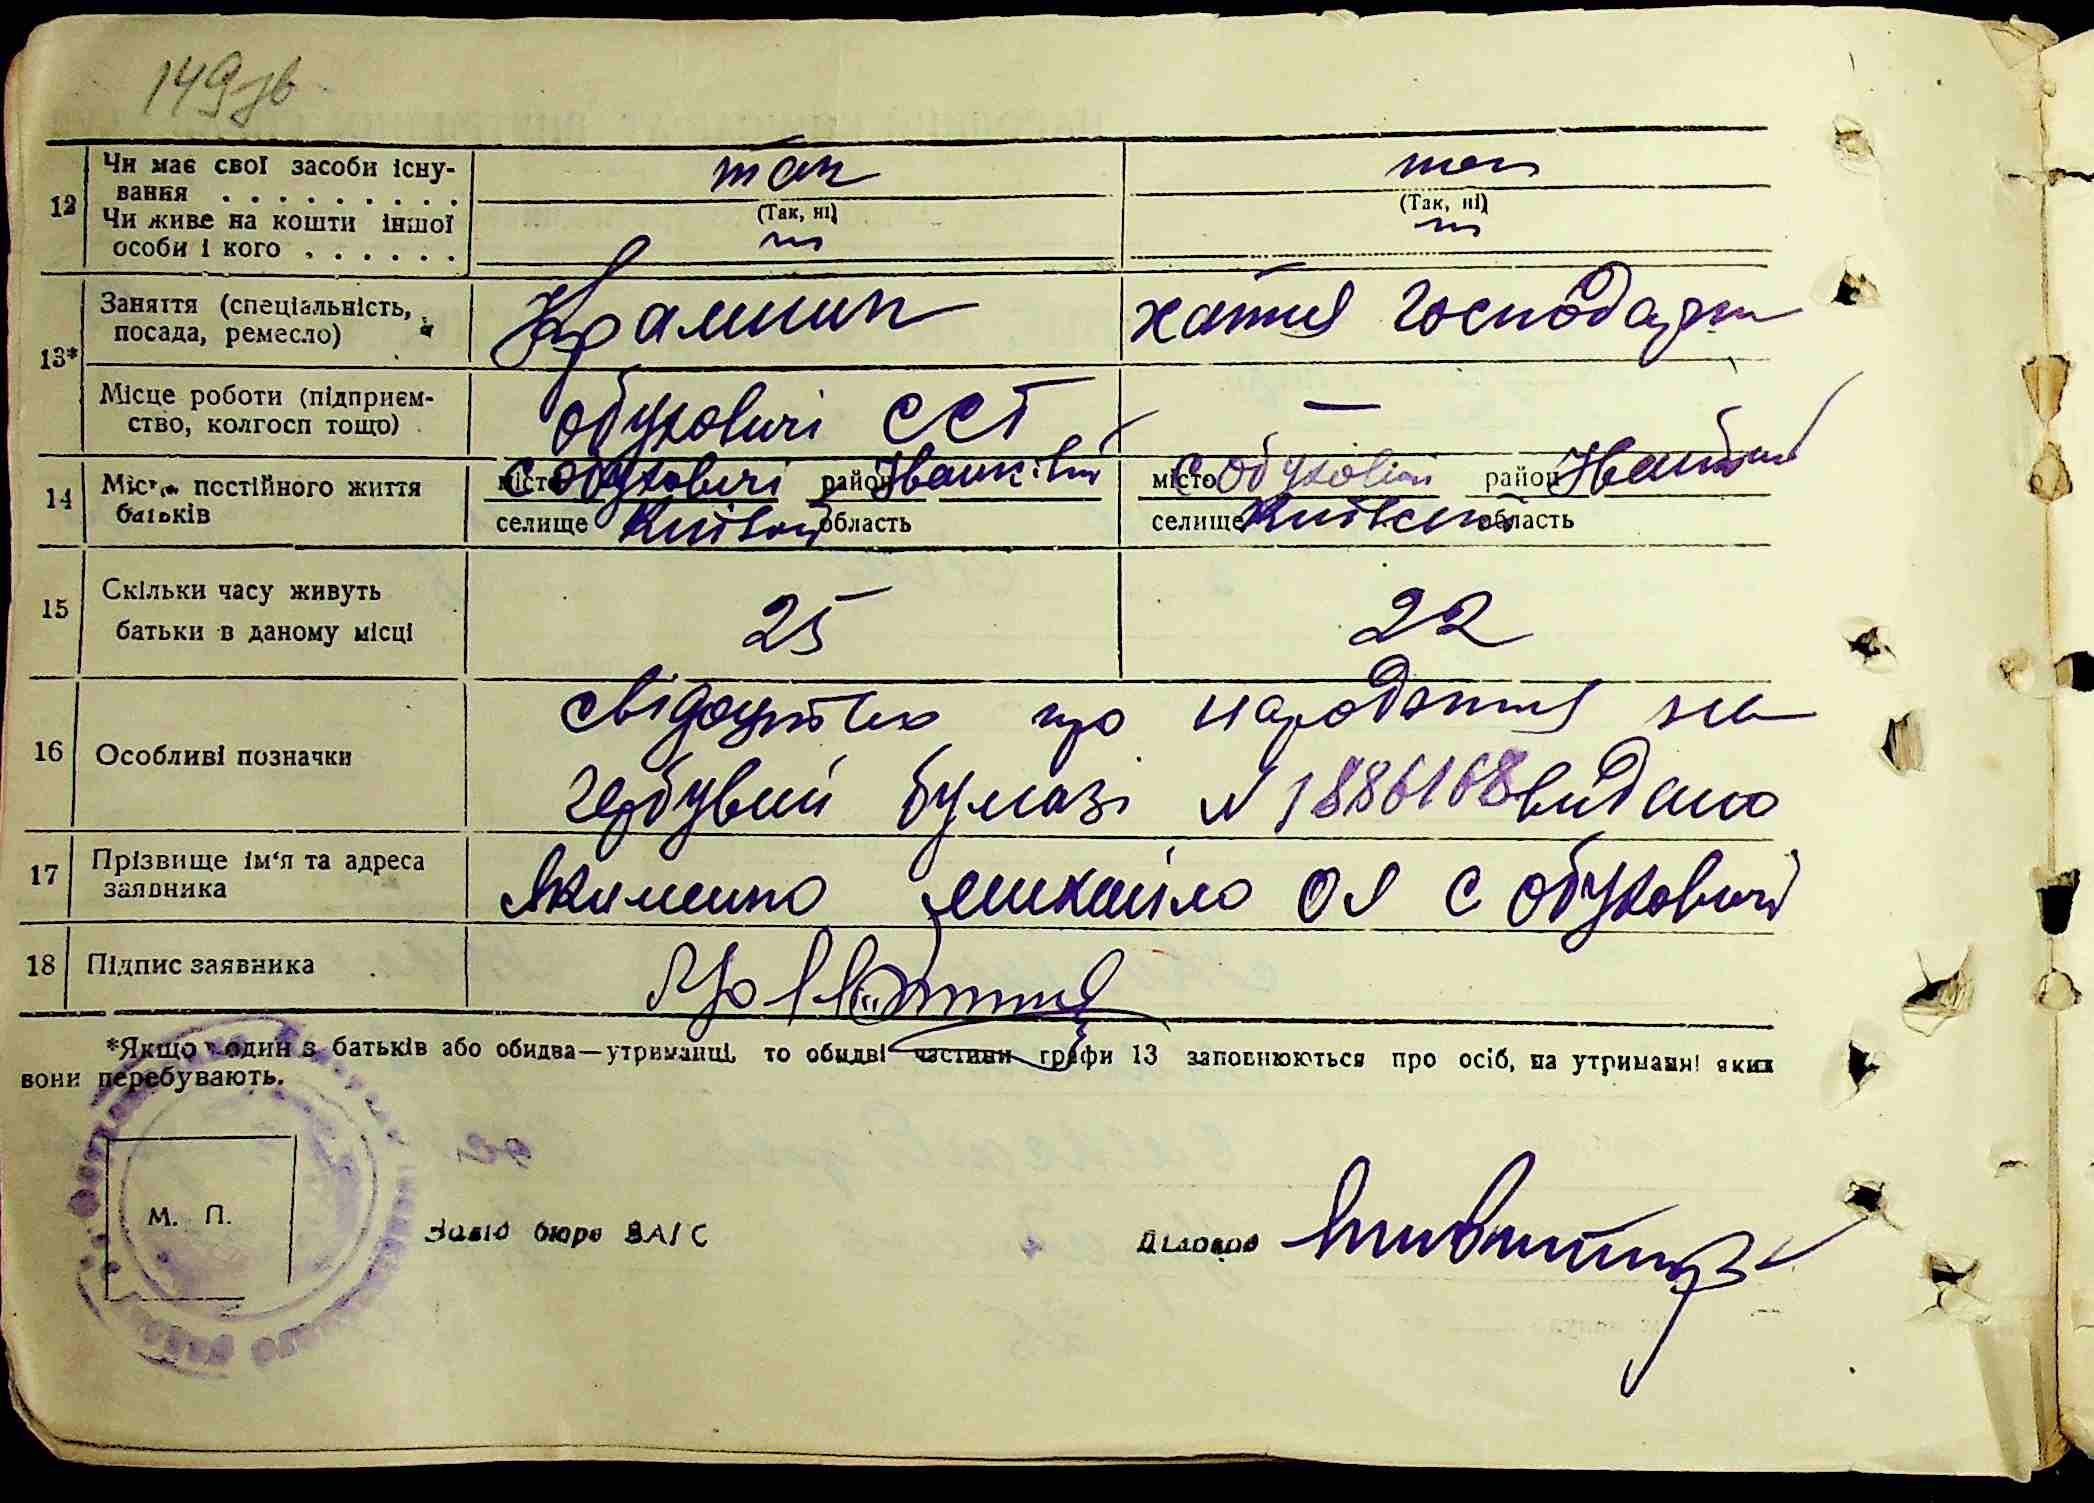 149зв
12 Чи має свої засоби існу- так так
вання . . . . . . . . . (Так, ні) (Так, ні)
Чи живе на кошти іншої ні ні
особи і кого . . . . . .
13* Заняття (спеціальність, Крамник хатня господарка
посада, ремесло)
Місце роботи (підприєм- Обуховичі ССТ —
ство, колгосп тощо)
14 Місце постійного життя місто с Обуховичі район Іванківсі місто с Обуховичі район
батьків селище Київсой область селище Київской область
15 Скільки часу живуть 25 22
батьки в даному місці
16 Особливі позначки свідоцтво про народження на
гербувий бумазі № 1886168 видано
17 Прізвище ім'я та адреса Якименко Михайло ОЯ с Обуховичі
заявника
18 Підпис заявника
*Якщо один з батьків або обидва—утриманці, то обидві частини графи 13 заповнюються про осіб, на утриманні яких
вони перебувають.
М. П. Завід бюро ЗАГС Діловод